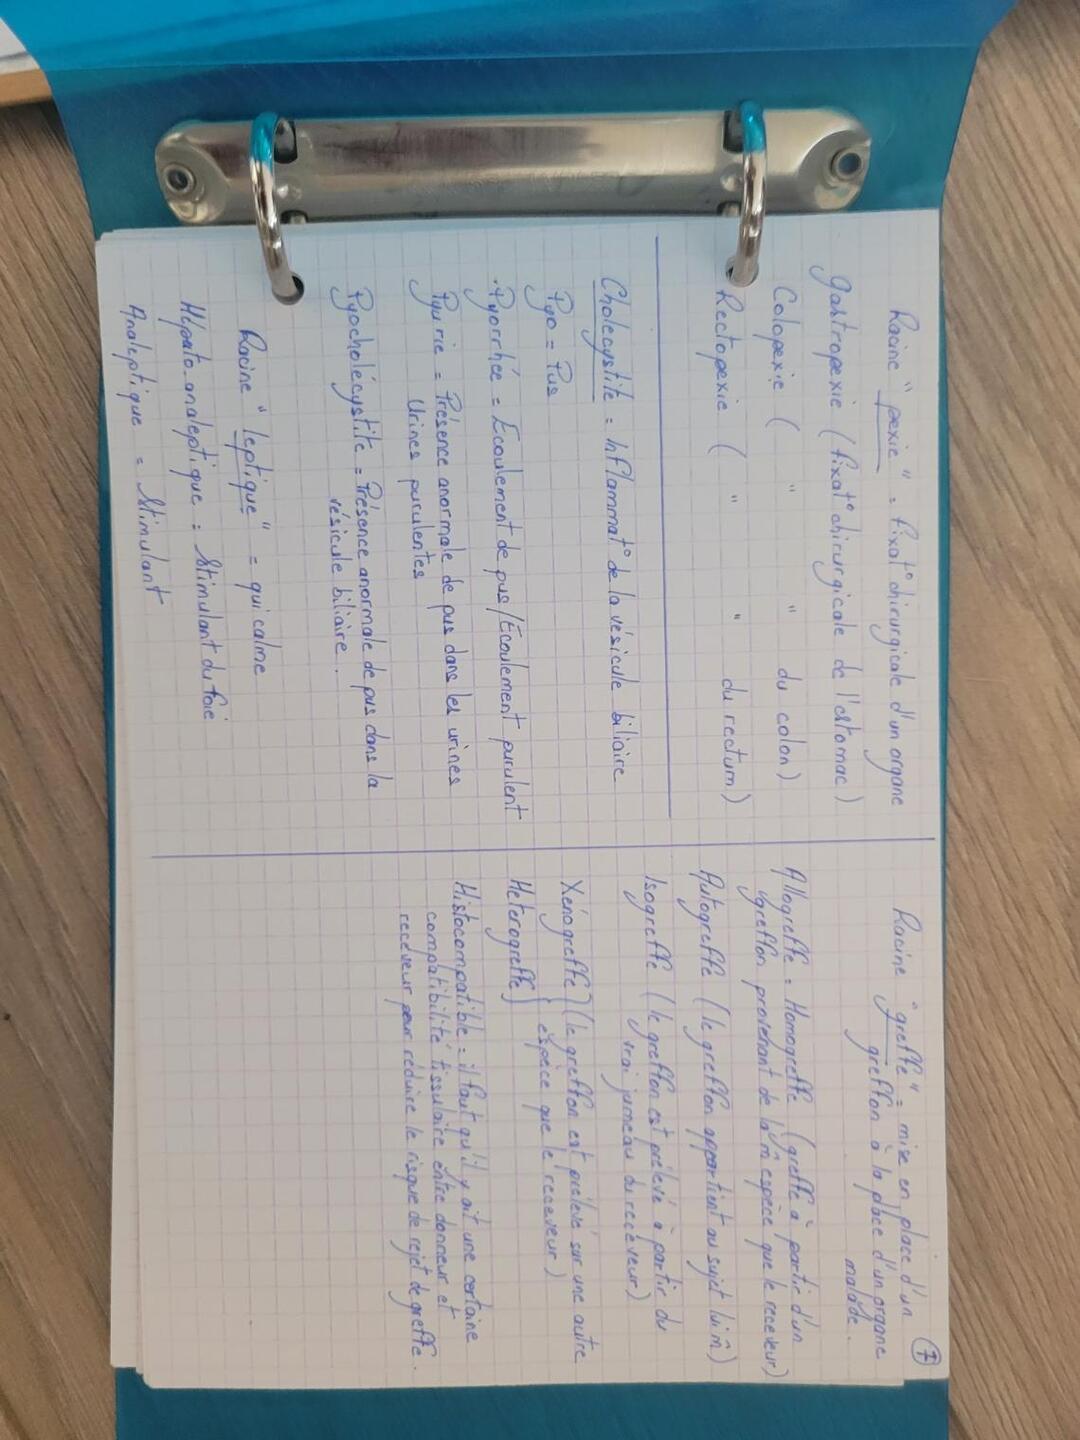 Racine "pexie" = fixat° chirurgicale d'un organe
Gastropexie (fixat° chirurgicale de l'estomac)
Colopexie ( " " du colon)
Rectopexie ( " " du rectum)
Cholécystite = Inflammat° de la vésicule biliaire
Pyo = Pus
.Pyorrhée = Ecoulement de pus/Ecoulement purulent
Pyurie = Présence anormale de pus dans les urines
Urines purulentes
Pyocholécystite = Présence anormale de pus dans la
vésicule biliaire.
Racine "leptique" = qui calme
Hépato analeptique = Stimulant du foie
Analeptique = Stimulant
7
Racine "greffe" = mise en place d'un
greffon à la place d'un organe
malade.
Allogreffe = Homogreffe (greffe à partir d'un
greffon provenant de la m̂ espèce que le receveur)
Autogreffe (le greffon appartient au sujet lui m̂)
Isogreffe (le greffon est prélevé à partir du
vrai jumeau du receveur)
Xénogreffe) (le greffon est prélevé sur une autre
Hétérogreffe) espèce que le receveur)
Histocompatible = il faut qu'il y ait une certaine
compatibilité tissulaire entre donneur et
receveur pour réduire le risque de rejet de greffe.